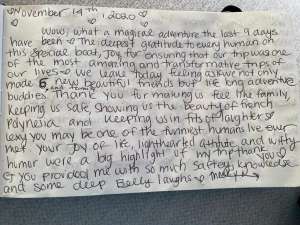 ♡November 14th 2020♡
Wow, what a magical adventure the last 9 days
have been ♡ The deepest gratitude to every human on
this special boat, Joy, for ensuring that our trip was one
of the most amazing and transformative trips of
our lives ♡ We leave today feeling as we not only
made 6 new beautiful friends but life long adventure
buddies and teachers. Thank you for making us feel like family,
keeping us safe, showing us the beauty of french
Polynesia and keeping us in fits of laughter♡
you may be one of the funniest humans Ive ever
met your joy of life, lighthearted attitude and witty
humor were a big highlight of my trip thank you♡
you provided me with so much safety, knowledge
and some deep Belly laughs ♡